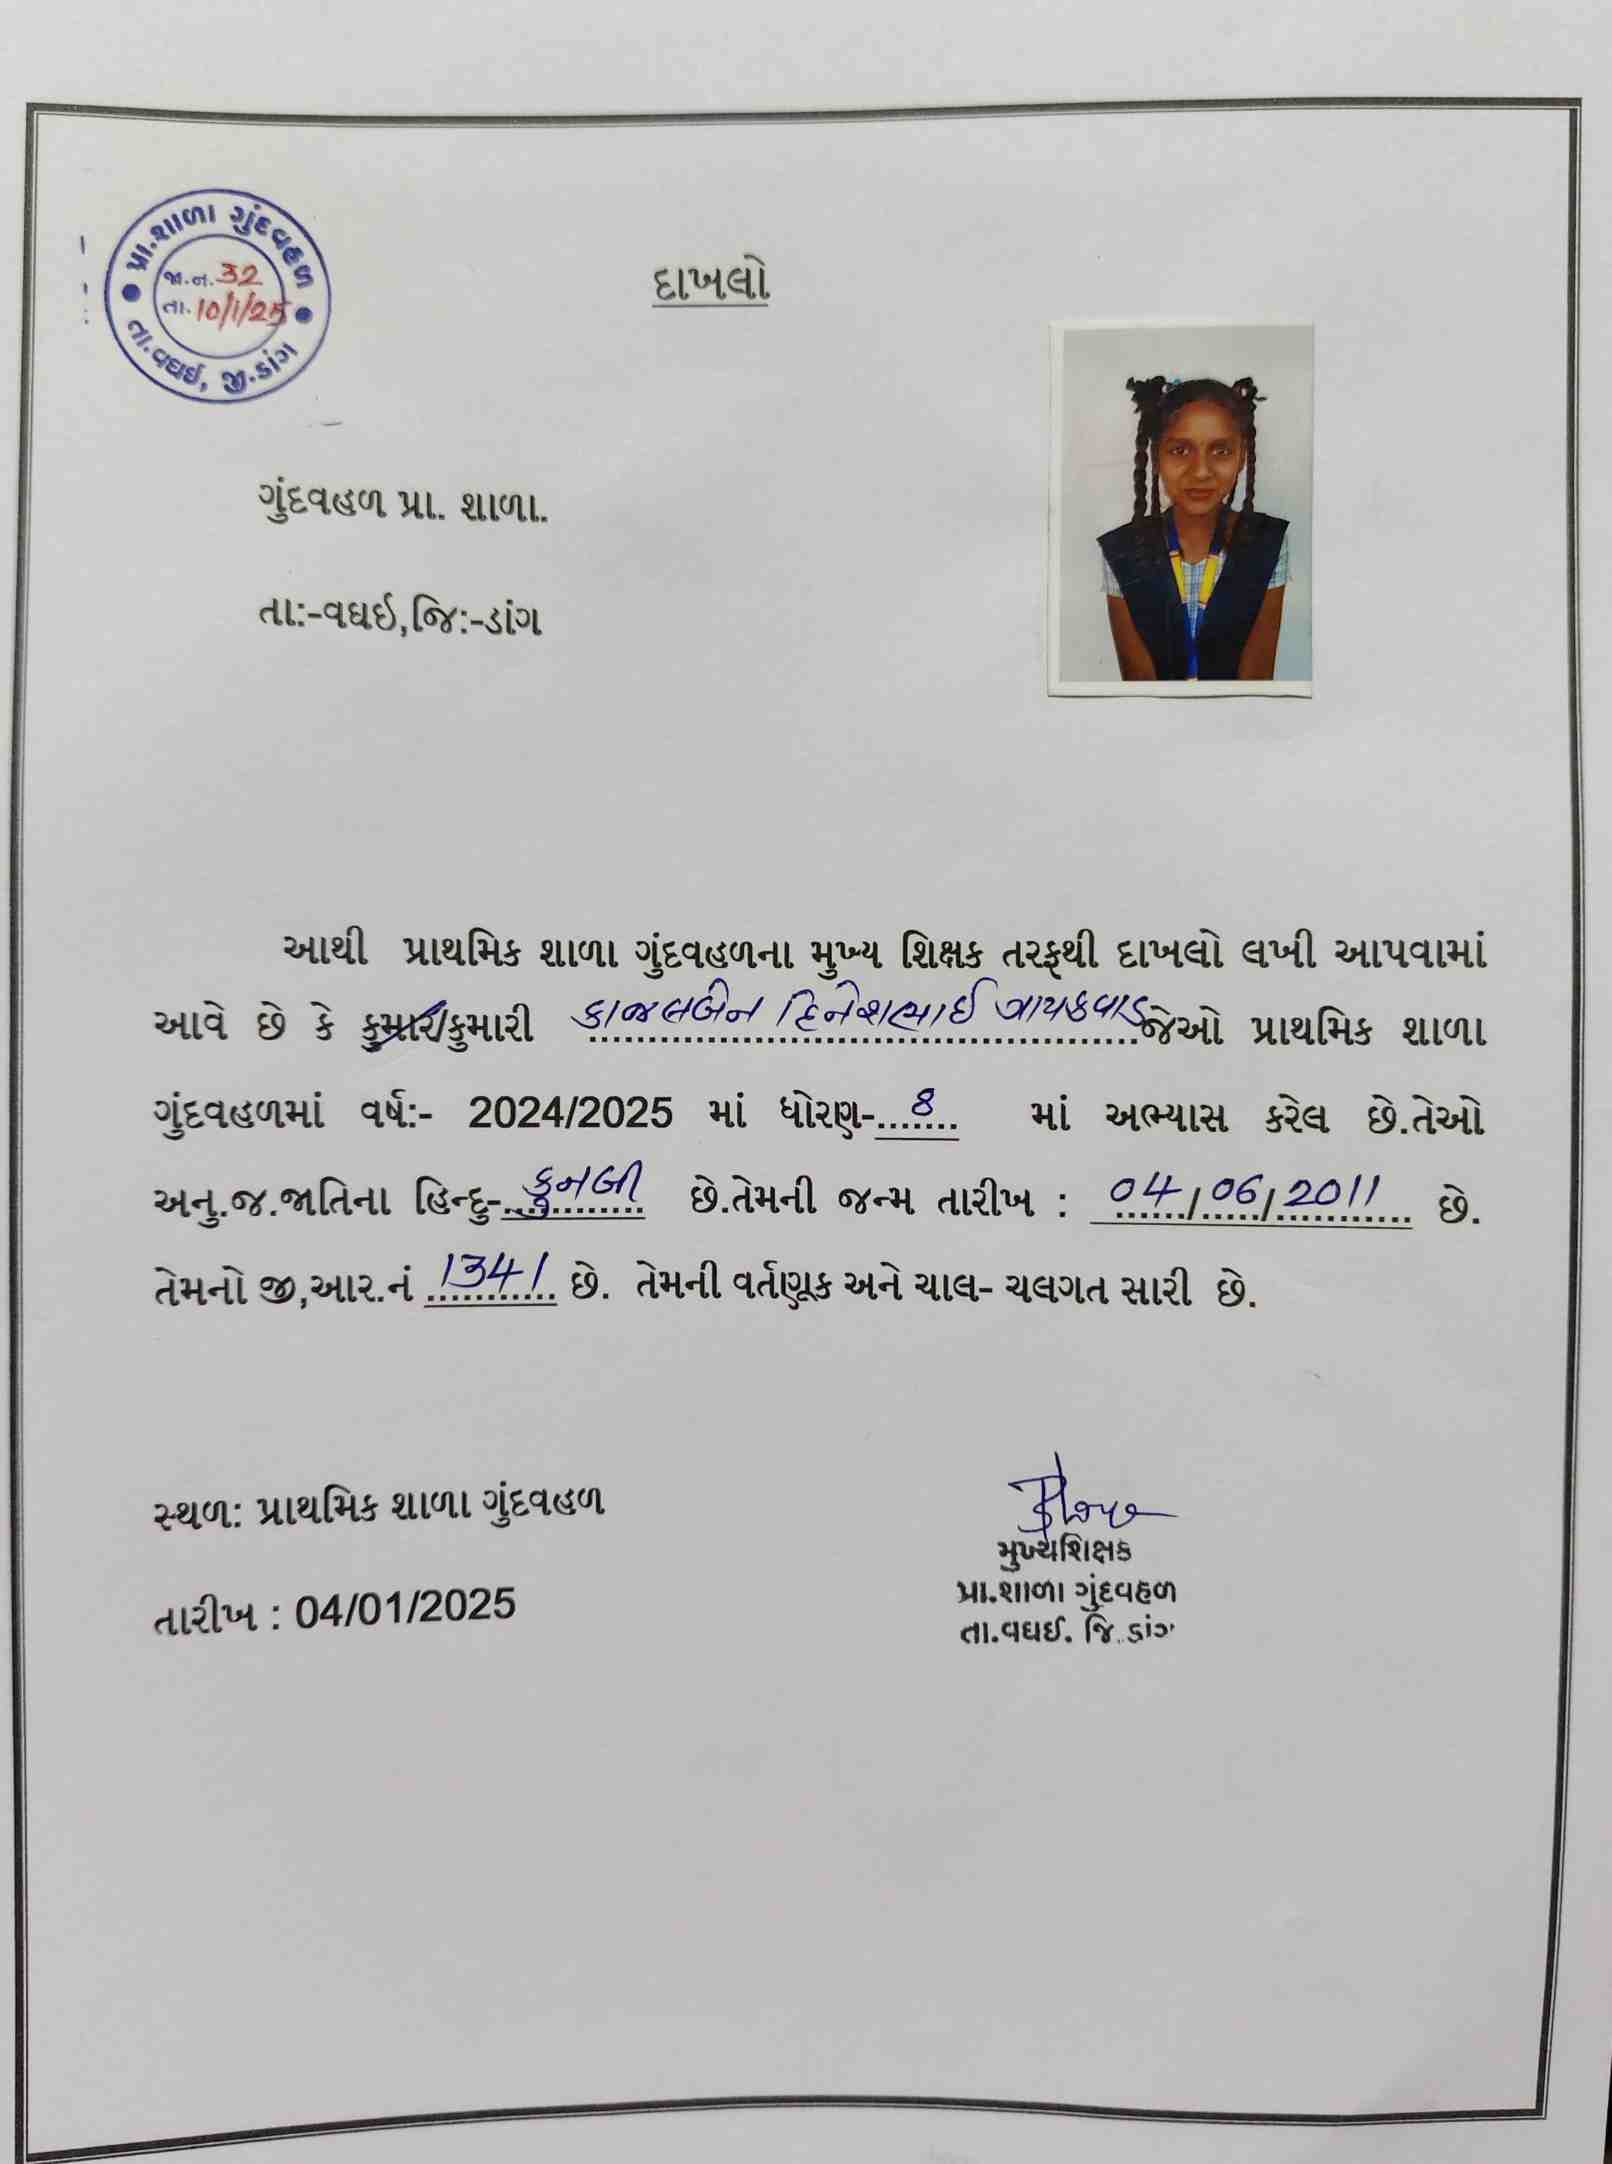 પ્રા.શાળા ગુંદવહળ
જા.ન. 32
તા. 10/1/25
તા.વઘઈ, જી.ડાંગ
દાખલો
ગુંદવહળ પ્રા. શાળા.
તા:-વઘઈ,જિ:-ડાંગ
આથી પ્રાથમિક શાળા ગુંદવહળના મુખ્ય શિક્ષક તરફથી દાખલો લખી આપવામાં
આવે છે કે કુમાર/કુમારી કાજલબેન દિનેશભાઈ ગાયકવાડ જેઓ પ્રાથમિક શાળા
ગુંદવહળમાં વર્ષ:- 2024/2025 માં ધોરણ- 8 માં અભ્યાસ કરેલ છે.તેઓ
અનુ.જ.જાતિના હિન્દુ- કુનબી છે.તેમની જન્મ તારીખ : 04/06/2011 છે.
તેમનો જી,આર.નં 1341 છે. તેમની વર્તણૂક અને ચાલ- ચલગત સારી છે.
સ્થળ: પ્રાથમિક શાળા ગુંદવહળ
તારીખ : 04/01/2025
મુખ્યશિક્ષક
પ્રા.શાળા ગુંદવહળ
તા.વઘઈ. જિ.ડાંગ